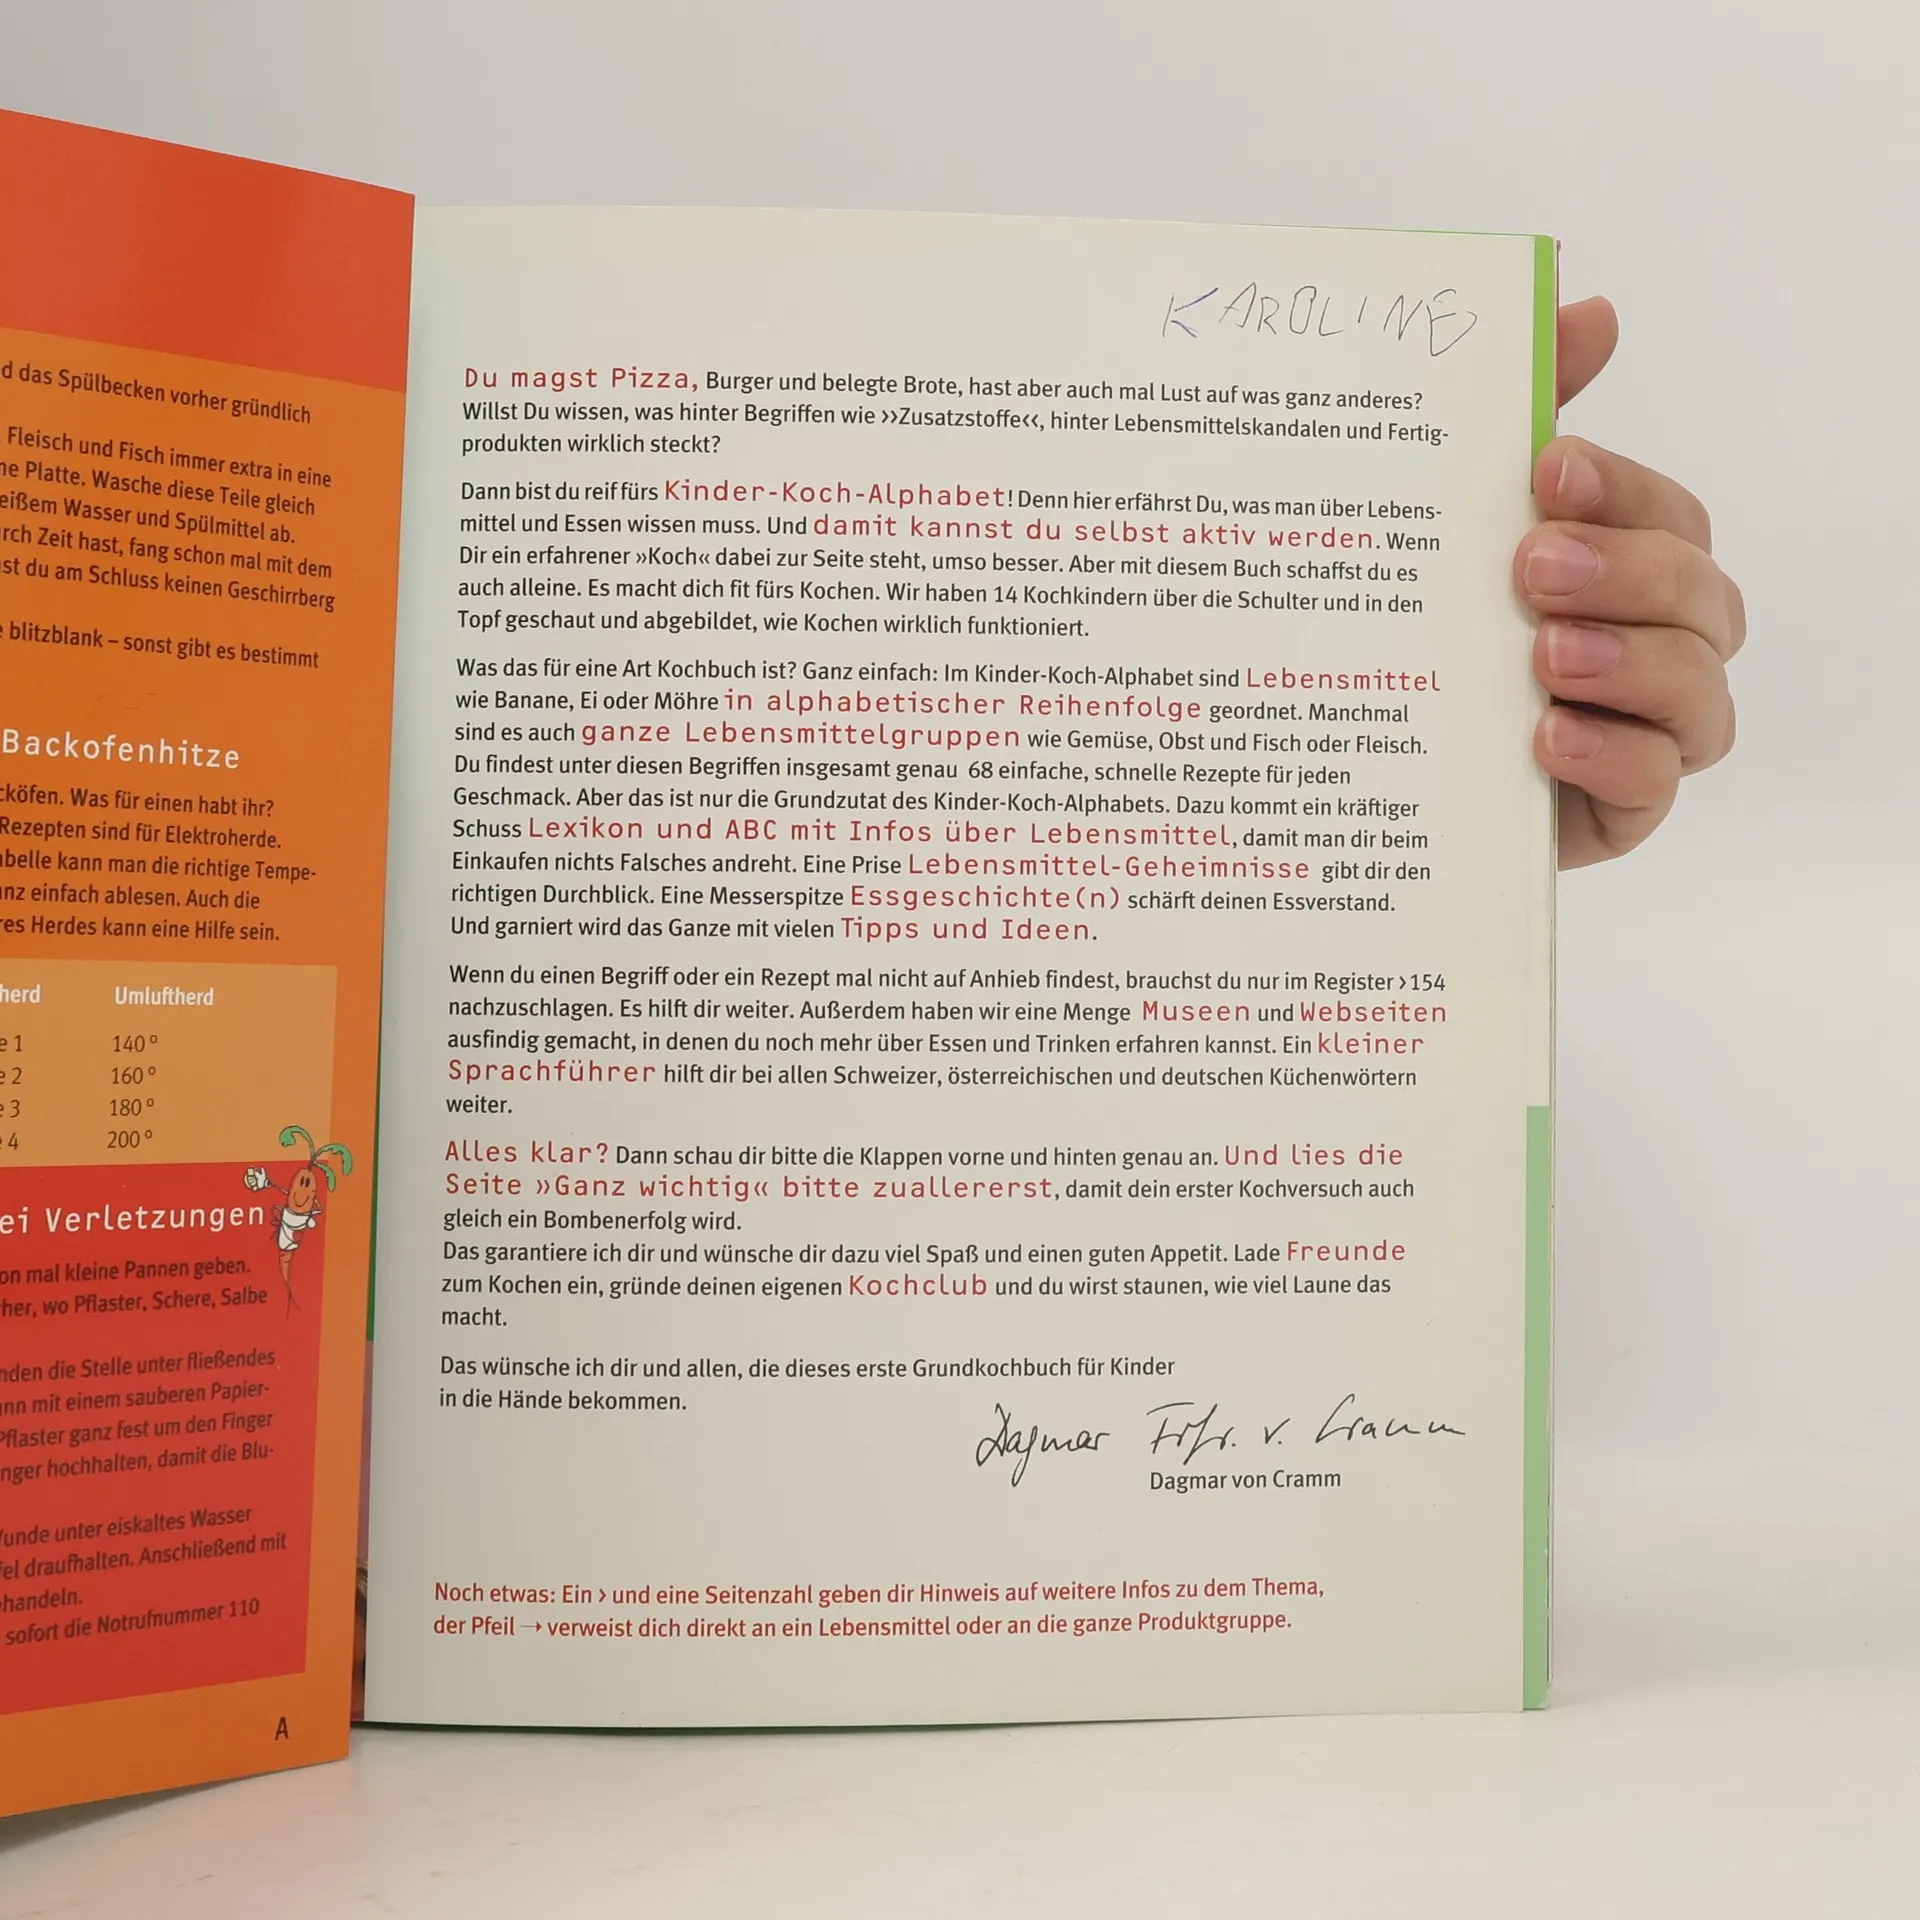 d das Spülbecken vorher gründlich
Fleisch und Fisch immer extra in eine
ne Platte. Wasche diese Teile gleich
eißem Wasser und Spülmittel ab.
rch Zeit hast, fang schon mal mit dem
st du am Schluss keinen Geschirrberg
e blitzblank – sonst gibt es bestimmt
Backofenhitze
cköfen. Was für einen habt ihr?
Rezepten sind für Elektroherde.
abelle kann man die richtige Tempe-
anz einfach ablesen. Auch die
res Herdes kann eine Hilfe sein.
herd Umluftherd
e 1 140°
e 2 160°
e 3 180°
e 4 200°
ei Verletzungen
on mal kleine Pannen geben.
her, wo Pflaster, Schere, Salbe
nden die Stelle unter fließendes
ann mit einem sauberen Papier-
Pflaster ganz fest um den Finger
nger hochhalten, damit die Blu-
Wunde unter eiskaltes Wasser
fel draufhalten. Anschließend mit
handeln.
sofort die Notrufnummer 110
A
KAROLINE
Du magst Pizza, Burger und belegte Brote, hast aber auch mal Lust auf was ganz anderes?
Willst Du wissen, was hinter Begriffen wie »Zusatzstoffe«, hinter Lebensmittelskandalen und Fertig-
produkten wirklich steckt?
Dann bist du reif fürs Kinder-Koch-Alphabet! Denn hier erfährst Du, was man über Lebens-
mittel und Essen wissen muss. Und damit kannst du selbst aktiv werden. Wenn
Dir ein erfahrener »Koch« dabei zur Seite steht, umso besser. Aber mit diesem Buch schaffst du es
auch alleine. Es macht dich fit fürs Kochen. Wir haben 14 Kochkindern über die Schulter und in den
Topf geschaut und abgebildet, wie Kochen wirklich funktioniert.
Was das für eine Art Kochbuch ist? Ganz einfach: Im Kinder-Koch-Alphabet sind Lebensmittel
wie Banane, Ei oder Möhre in alphabetischer Reihenfolge geordnet. Manchmal
sind es auch ganze Lebensmittelgruppen wie Gemüse, Obst und Fisch oder Fleisch.
Du findest unter diesen Begriffen insgesamt genau 68 einfache, schnelle Rezepte für jeden
Geschmack. Aber das ist nur die Grundzutat des Kinder-Koch-Alphabets. Dazu kommt ein kräftiger
Schuss Lexikon und ABC mit Infos über Lebensmittel, damit man dir beim
Einkaufen nichts Falsches andreht. Eine Prise Lebensmittel-Geheimnisse gibt dir den
richtigen Durchblick. Eine Messerspitze Essgeschichte(n) schärft deinen Essverstand.
Und garniert wird das Ganze mit vielen Tipps und Ideen.
Wenn du einen Begriff oder ein Rezept mal nicht auf Anhieb findest, brauchst du nur im Register >154
nachzuschlagen. Es hilft dir weiter. Außerdem haben wir eine Menge Museen und Webseiten
ausfindig gemacht, in denen du noch mehr über Essen und Trinken erfahren kannst. Ein kleiner
Sprachführer hilft dir bei allen Schweizer, österreichischen und deutschen Küchenwörtern
weiter.
Alles klar? Dann schau dir bitte die Klappen vorne und hinten genau an. Und lies die
Seite »Ganz wichtig« bitte zuallererst, damit dein erster Kochversuch auch
gleich ein Bombenerfolg wird.
Das garantiere ich dir und wünsche dir dazu viel Spaß und einen guten Appetit. Lade Freunde
zum Kochen ein, gründe deinen eigenen Kochclub und du wirst staunen, wie viel Laune das
macht.
Das wünsche ich dir und allen, die dieses erste Grundkochbuch für Kinder
in die Hände bekommen.
Dagmar Frfr. v. Cramm
Dagmar von Cramm
Noch etwas: Ein > und eine Seitenzahl geben dir Hinweis auf weitere Infos zu dem Thema,
der Pfeil → verweist dich direkt an ein Lebensmittel oder an die ganze Produktgruppe.